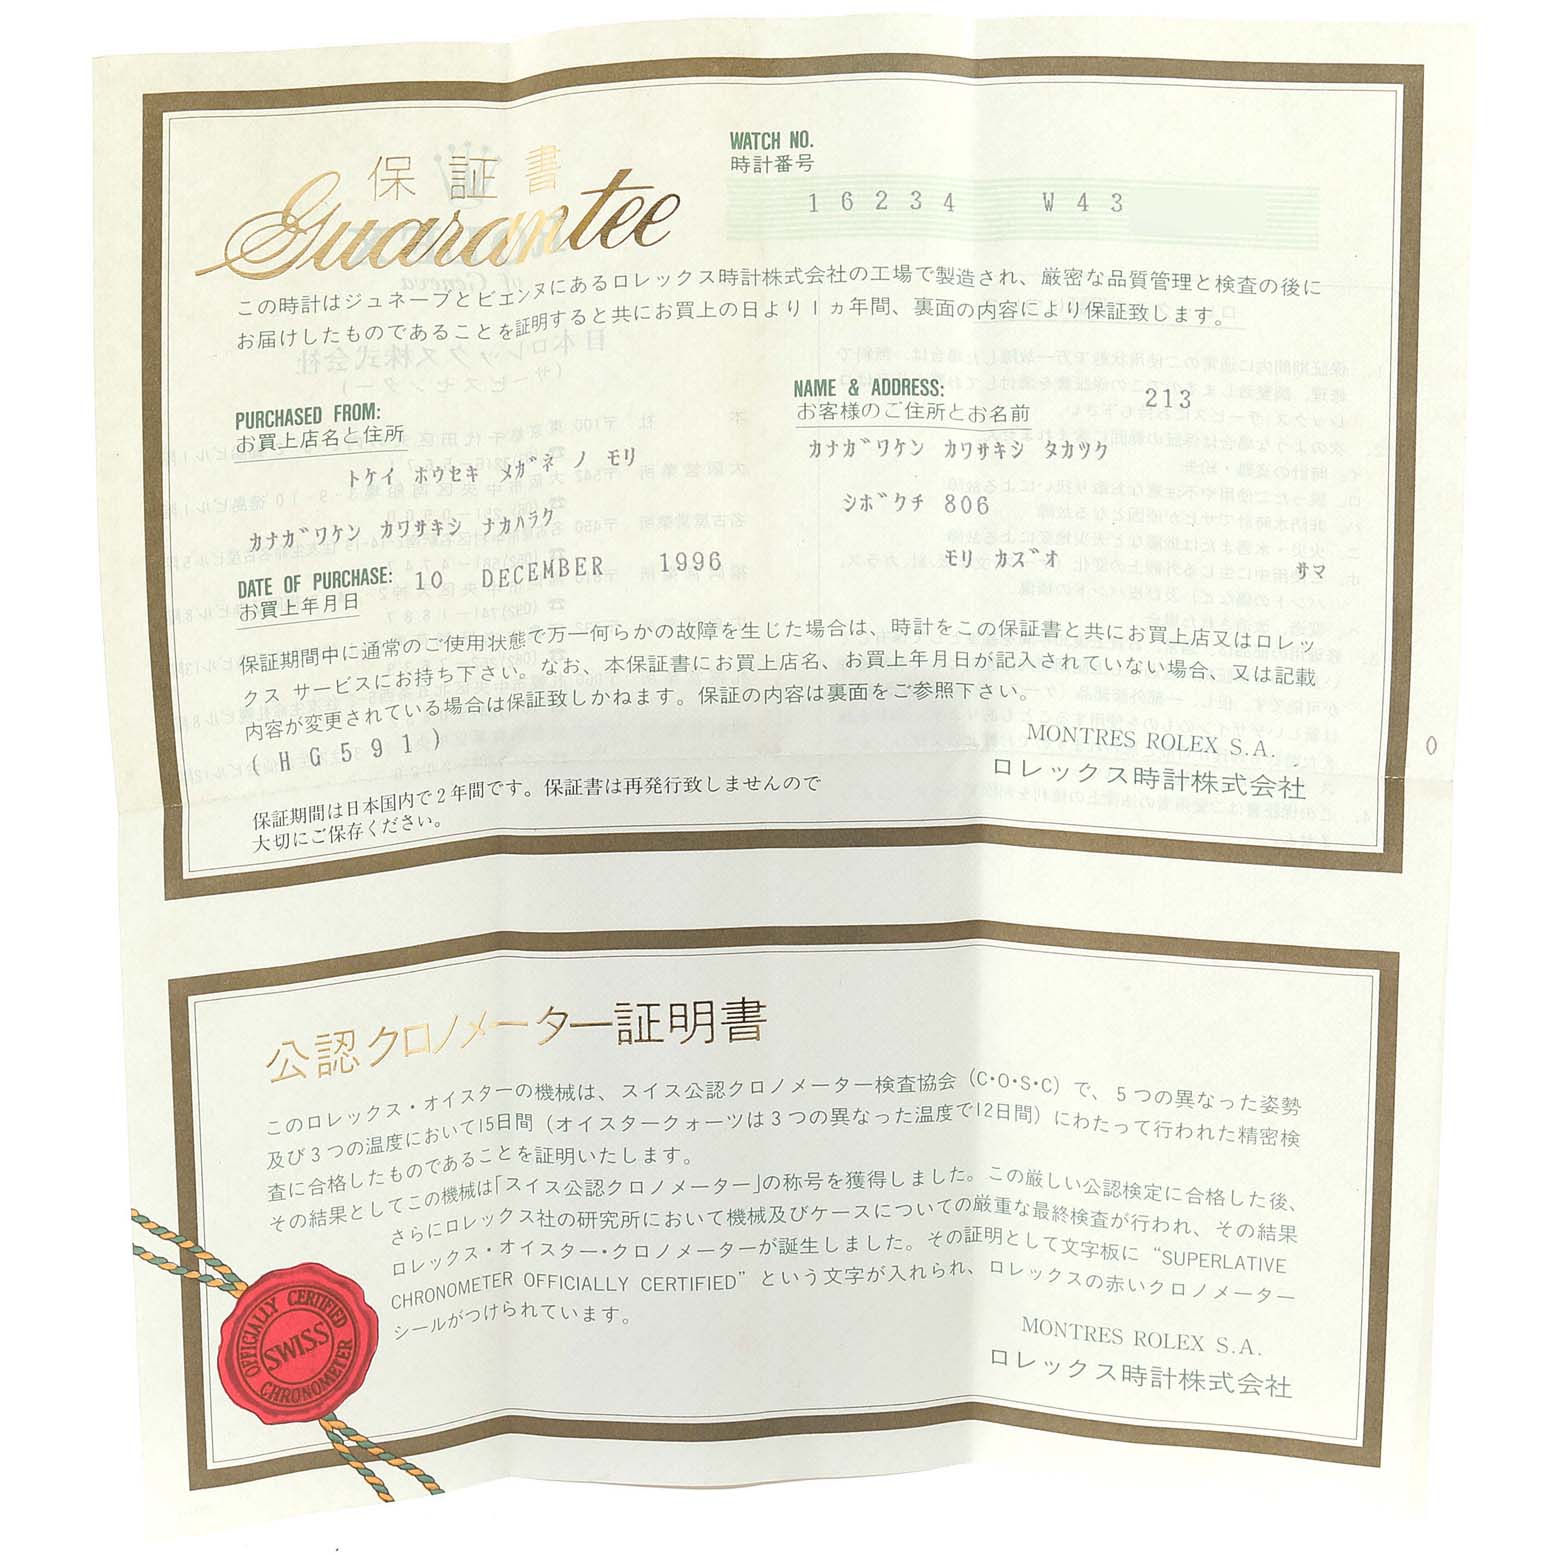 保証書
Guarantee
WATCH NO.
時計番号
16234 W43
この時計はジュネーブとビエンヌにあるロレックス時計株式会社の工場で製造され、厳密な品質管理と検査の後に
お届けしたものであることを証明すると共にお買上の日より1ヵ年間、裏面の内容により保証致します。
PURCHASED FROM:
お買上店名と住所
トケイ ホウセキ メガネ ノ モリ
カナガワケン カワサキシ ナカハラク
NAME & ADDRESS:
お客様のご住所とお名前
213
カナガワケン カワサキシ タカツク
シボクチ 806
モリ カズオ サマ
DATE OF PURCHASE: 10 DECEMBER 1996
お買上年月日
保証期間中に通常のご使用状態で万一何らかの故障を生じた場合は、時計をこの保証書と共にお買上店又はロレッ
クス サービスにお持ち下さい。なお、本保証書にお買上店名、お買上年月日が記入されていない場合、又は記載
内容が変更されている場合は保証致しかねます。保証の内容は裏面をご参照下さい。
(HG591)
MONTRES ROLEX S.A.
ロレックス時計株式会社
0
保証期間は日本国内で2年間です。保証書は再発行致しませんので
大切にご保存ください。
公認クロノメーター証明書
このロレックス・オイスターの機械は、スイス公認クロノメーター検査協会(C・O・S・C)で、5つの異なった姿勢
及び3つの温度において15日間(オイスタークォーツは3つの異なった温度で12日間)にわたって行われた精密検
査に合格したものであることを証明いたします。
その結果としてこの機械は「スイス公認クロノメーター」の称号を獲得しました。この厳しい公認検定に合格した後、
さらにロレックス社の研究所において機械及びケースについての厳重な最終検査が行われ、その結果
ロレックス・オイスター・クロノメーターが誕生しました。その証明として文字板に“SUPERLATIVE
CHRONOMETER OFFICIALLY CERTIFIED”という文字が入れられ、ロレックスの赤いクロノメーター
シールがつけられています。
MONTRES ROLEX S.A.
ロレックス時計株式会社
OFFICIALLY CERTIFIED
SWISS
CHRONOMETER